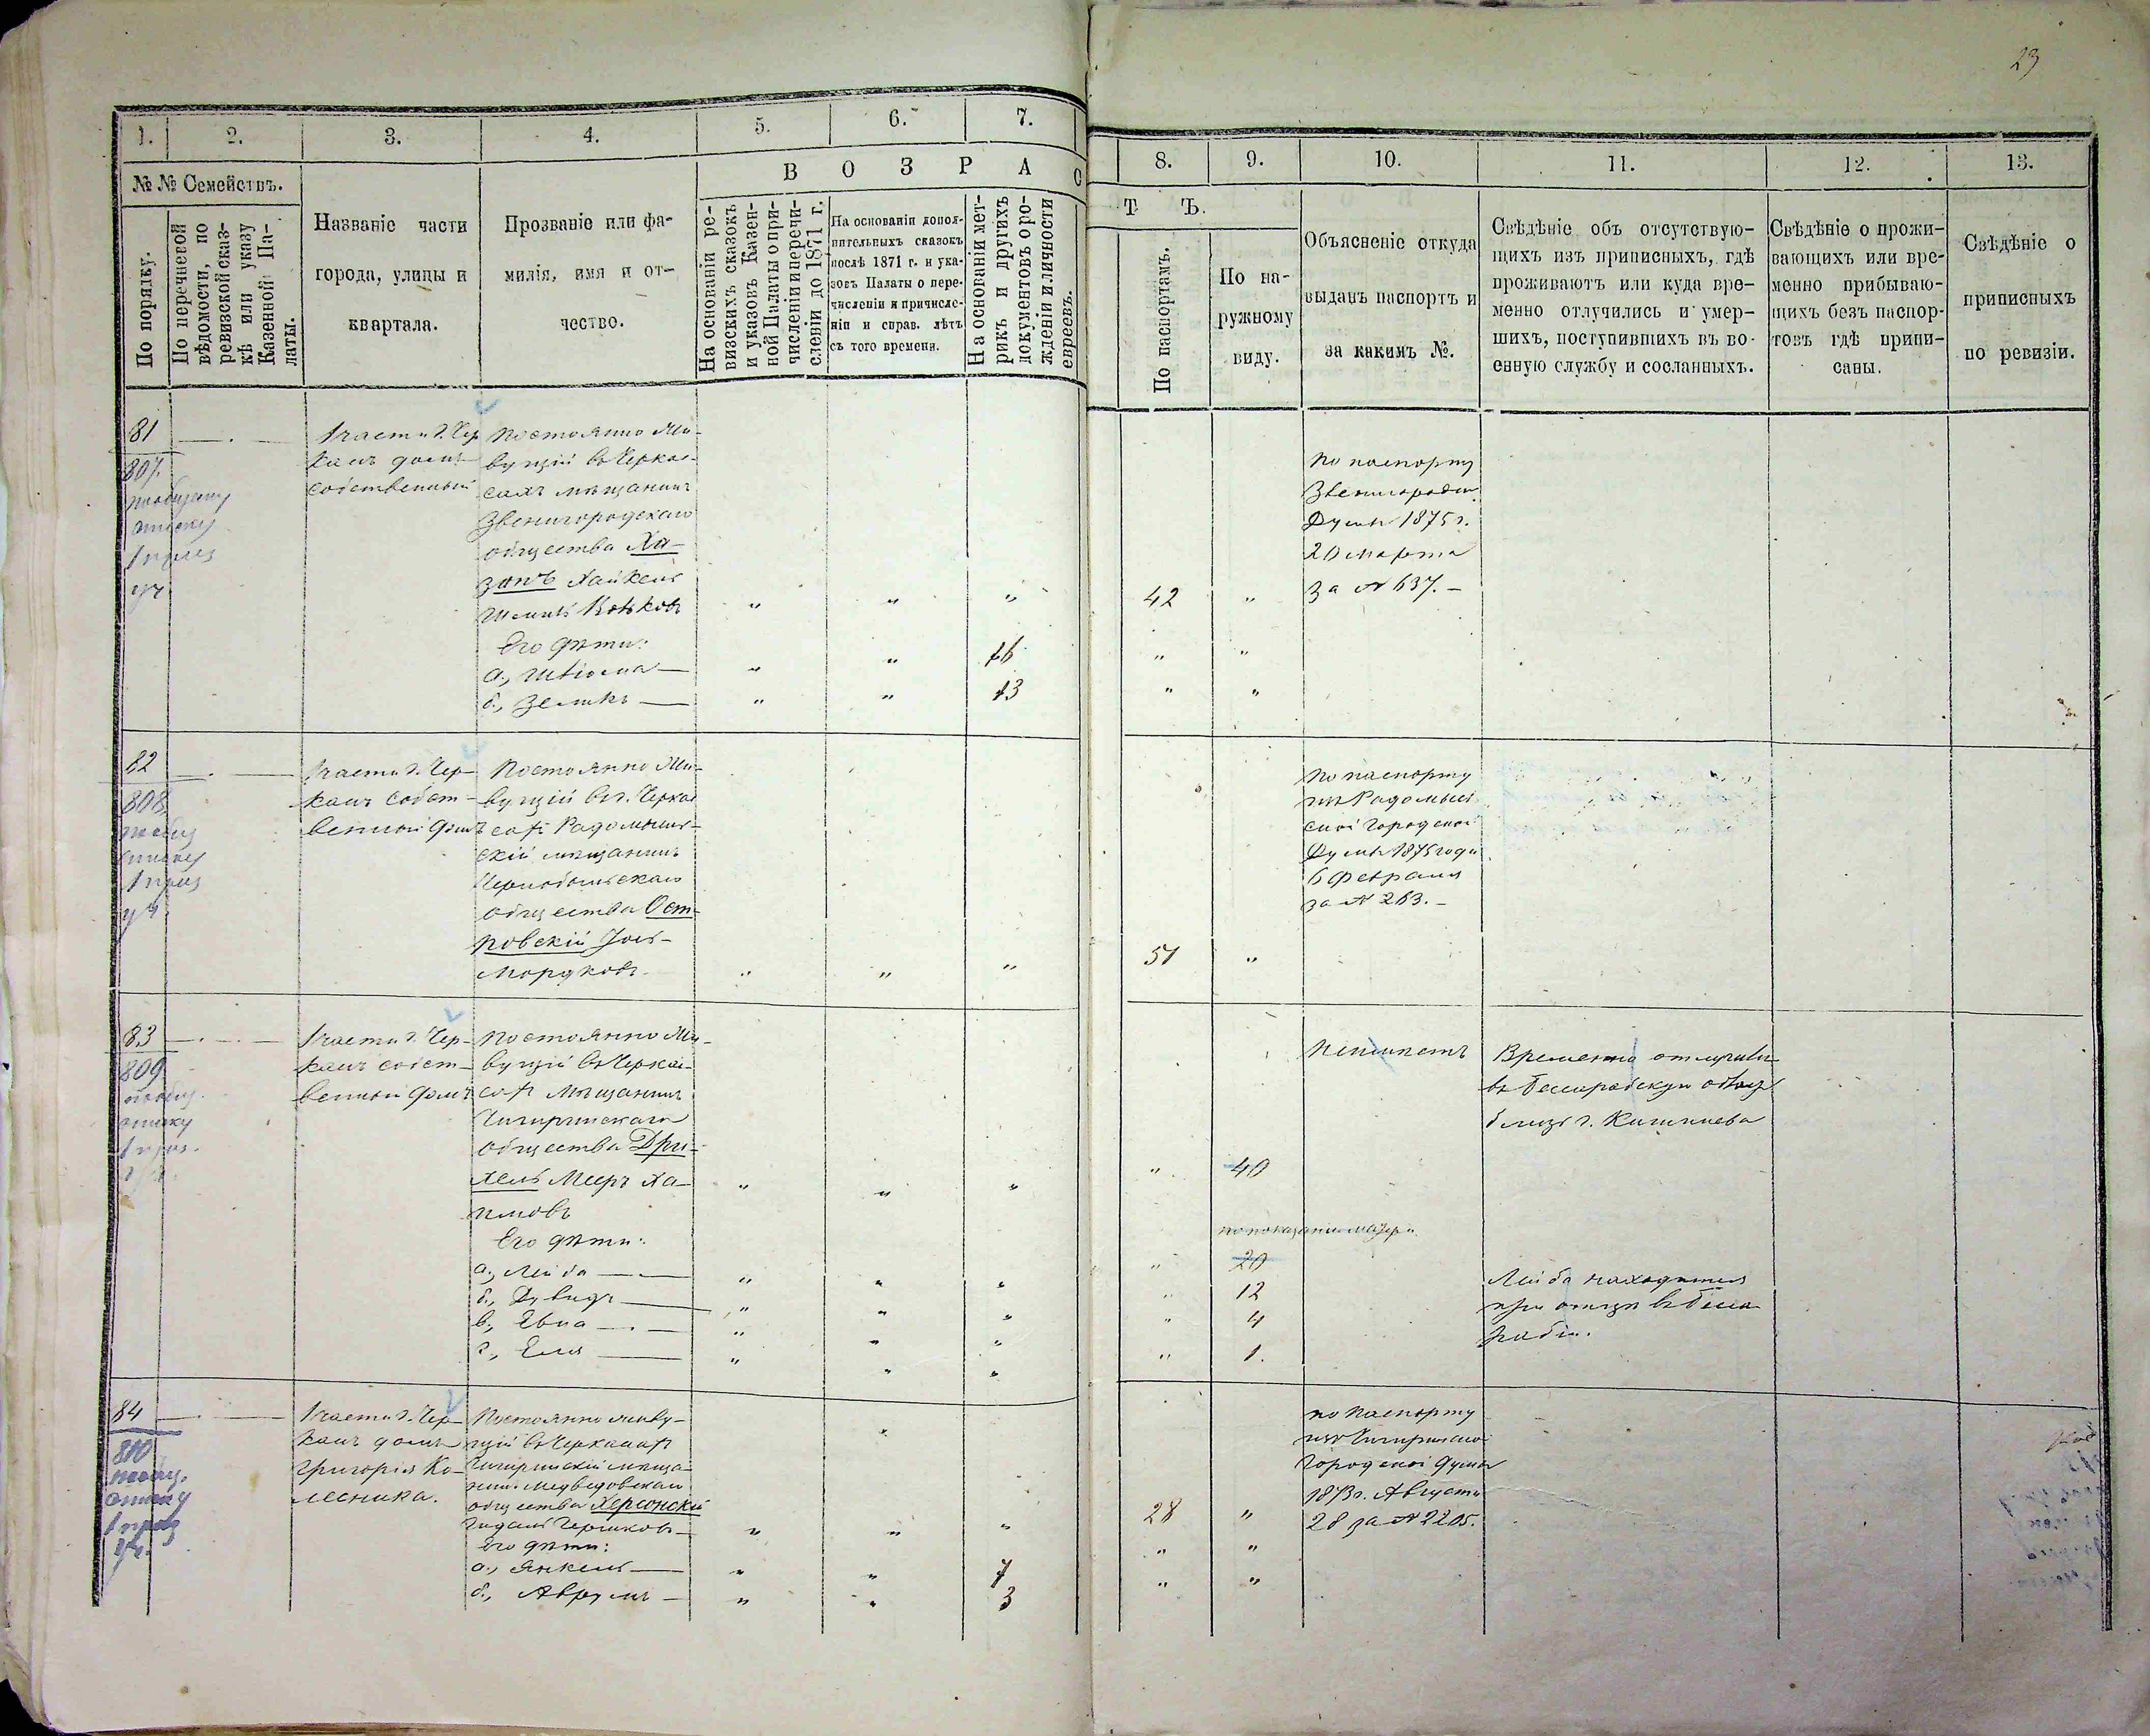 23
1.
2.
3.
4.
5.
6.
7.
8.
9.
10.
11.
12.
13.
№ № Семействъ.
В О З Р А С
Т Ъ.
По порядку.
По перечневой
вѣдомости, по
ревизской сказ-
кѣ или указу
Казенной Па-
латы.
Названіе части
города, улицы и
квартала.
Прозваніе или фа-
милія, имя и от-
чество.
На основаніи ре-
визскихъ сказокъ
и указовъ Казен-
ной Палаты о при-
численіи и перечи-
сленіи до 1871 г.
На основаніи допол-
нительныхъ сказокъ
послѣ 1871 г. и ука-
зовъ Палаты о пере-
численіи и причисле-
ніи и справ. лѣтъ
съ того времени.
На основаніи мет-
рикъ и другихъ
документовъ о ро-
жденіи и личности
евреевъ.
По паспортамъ.
По на-
ружному
виду.
Объясненіе откуда
выданъ паспортъ и
за какимъ №.
Свѣдѣніе объ отсутствую-
щихъ изъ приписныхъ, гдѣ
проживаютъ или куда вре-
менно отлучились и умер-
шихъ, поступившихъ въ во-
енную службу и сосланныхъ.
Свѣдѣніе о прожи-
вающихъ или вре-
менно прибываю-
щихъ безъ паспор-
товъ гдѣ припи-
саны.
Свѣдѣніе о
приписныхъ
по ревизіи.
81
807
1 части г. Чер
касъ домъ
собственный
Постоянно жи-
вущій въ Черкас-
сахъ мѣщанинъ
Звенигородскаго
общества Ха-
занъ Хайкель
Шлимъ Вольковъ
Его дѣти:
а., Шліома
б., Зеликъ
" " "
" " 16
" " 13
42 "
" "
" "
по паспорту
Звенигородск
Думы 1875 г.
20 марта
за № 637. -
82
808
1 части г. Чер-
касъ собст-
венный домъ
Постоянно жи-
вущій въ г. Черкас
сахъ Радомысль-
скій мѣщанинъ
Чернобыльскаго
общества Ост-
ровскій Іось-
Мордковъ
" " "
51 "
по паспорту
изъ Радомысл
ской Городской
Думы 1875 года
6 Февраля
за № 263. -
83
809
1 части г. Чер-
касъ собст-
венный домъ
Постоянно жи-
вущій въ Черкас-
сахъ мѣщанинъ
Чигиринскаго
общества Дри-
хель Мееръ Ха-
имовъ
Его дѣти:
а., Лейба
б., Дувидъ
в., Евна
г., Еля
" " "
" " "
" " "
" " "
" " "
" 40
по показанію матери
" 20
" 12
" 4
" 1.
Неимѣетъ
Временно отлучился
въ Бессарабскую область
близь г. Кишинева
Лейба находится
при отцѣ въ Бесса
рабіи.
84
810
1 части г. Чер-
касъ домъ
Григорія Ко-
лесника.
Постоянно живу-
щій въ Черкасахъ
Чигиринскій мѣща-
нинъ Медведовскаго
общества Херсонскій
Гидаль Гершковъ
Его дѣти:
а., Янкель
б., Аврумъ
" " "
" " 7
" " 3
28 "
" "
" "
по паспорту
изъ Чигиринской
Городской Думы
1873 г. Августа
28 за № 2205.